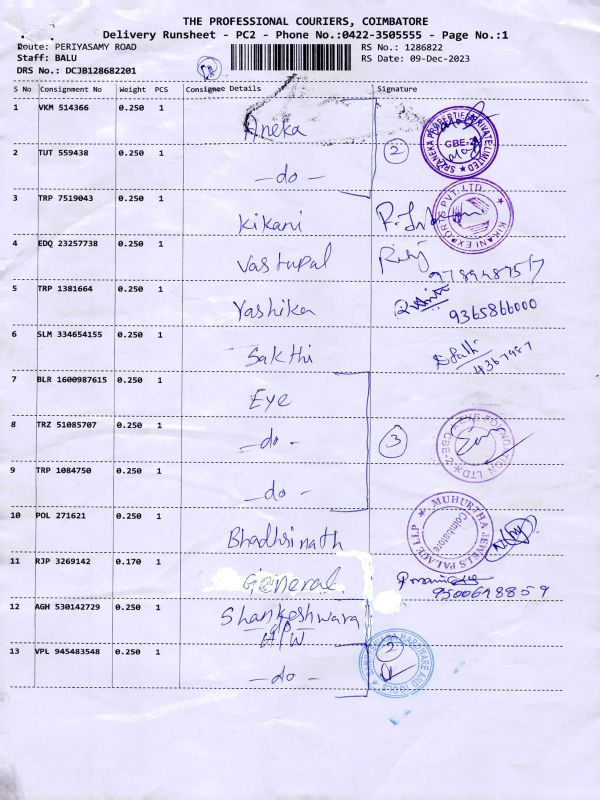 THE PROFESSIONAL COURIERS, COIMBATORE
Delivery Runsheet - PC2 - Phone No.:0422-3505555 - Page No.:1
Route: PERIYASAMY ROAD RS No.: 1286822
Staff: BALU RS Date: 09-Dec-2023
DRS No.: DCJB128682201
S No Consignment No Weight PCS Consignee Details Signature
1 VKM 514366 0.250 1 Aneka
2 TUT 559438 0.250 1 -do- 2
3 TRP 7519043 0.250 1 Kikani
4 EDQ 23257738 0.250 1 Vastupal
5 TRP 1381664 0.250 1 Yashika 9365866000
6 SLM 334654155 0.250 1 Sakthi
7 BLR 1600987615 0.250 1 Eye
8 TRZ 51085707 0.250 1 -do- 3
9 TRP 1084750 0.250 1 -do-
10 POL 271621 0.250 1 Bhadhrinath
11 RJP 3269142 0.170 1 General 9500698859
12 AGH 530142729 0.250 1 Shankeshwara
H/W
13 VPL 945483548 0.250 1 -do- 2
SRZANEKA PROPERTIES PRIVATE LIMITED CBE-2
KIKANI EXPORTS PVT. LTD.
EYE FOUNDATION LTD CBE-2
MUHURTHA JEWELS PALACE LLP Coimbatore
HARDWARE AND TOOLS